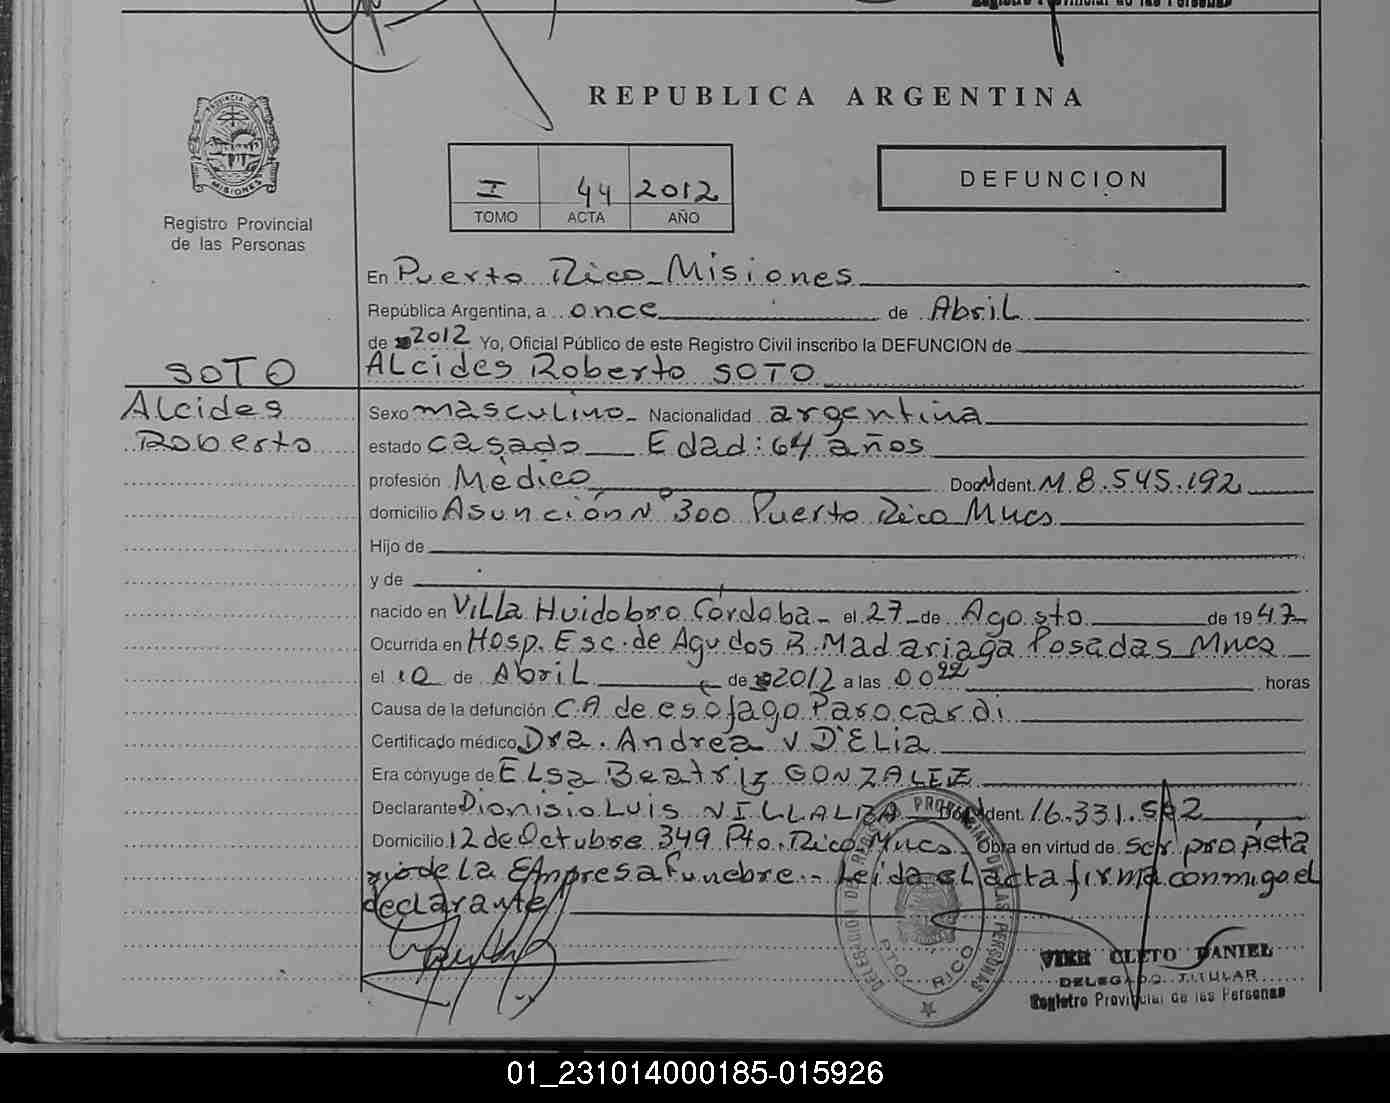 Registro Provincial de las Personas
REPUBLICA ARGENTINA
PROVINCIA DE
MISIONES
Registro Provincial
de las Personas
I 44 2012
TOMO ACTA AÑO
DEFUNCION
En Puerto Rico Misiones
República Argentina, a once de Abril
de 2012 Yo, Oficial Público de este Registro Civil inscribo la DEFUNCION de
SOTO
ALcides Roberto SOTO
Alcides
Roberto
Sexo masculino Nacionalidad argentina
estado casado Edad: 64 años
profesión Médico Doc. Ident. M 8.545.192
domicilio Asunción Nº 300 Puerto Rico Mnes
Hijo de
y de
nacido en ViLLa Huidobro Córdoba - el 27 de Agosto de 1947
Ocurrida en Hosp. Esc. de Agudos R. Madariaga Posadas Mnes
el 10 de AbriL de 2012 a las 00 22 horas
Causa de la defunción C.A de esofago Paro cardi
Certificado médico Dra. Andrea V D'ELia
Era cónyuge de ELsa Beatriz GONZALEZ
Declarante Dionisio Luis VILLALBA Doc. Ident. 16.331.562
Domicilio 12 de Octubre 349 Pto. Rico Mnes. Obra en virtud de ser propieta
rio de La Empresa Funebre - Leida el acta firma conmigo el
declarante
DELEGACIÓN DEL REGISTRO PROVINCIAL DE LAS PERSONAS
PTO. RICO
CLETO DANIEL
DELEGADO TITULAR
Registro Provincial de las Personas
01_231014000185-015926